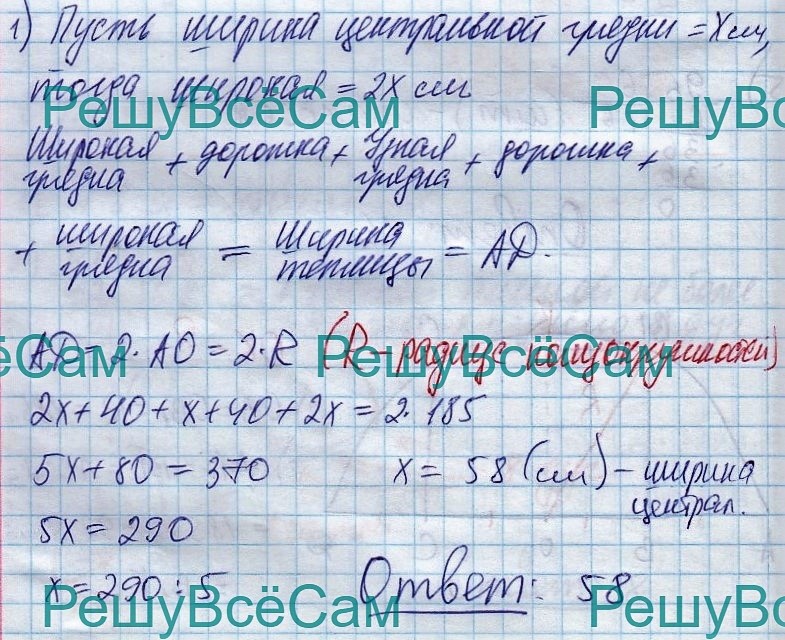 1) Пусть ширина центральной грядки = X см,
тогда широкая = 2X см
Широкая грядка + дорожка + Узкая грядка + дорожка +
+ широкая грядка = Ширина теплицы = AD.
AD = 2·AO = 2·R (R – радиус полуокружности)
2x + 40 + x + 40 + 2x = 2·185
5x + 80 = 370 x = 58 (см) – ширина централ.
5x = 290
x = 290 : 5 Ответ: 58
РешуВсёСам
РешуВс
ёСам РешуВсёСам
РешуВсёСам
РешуВс